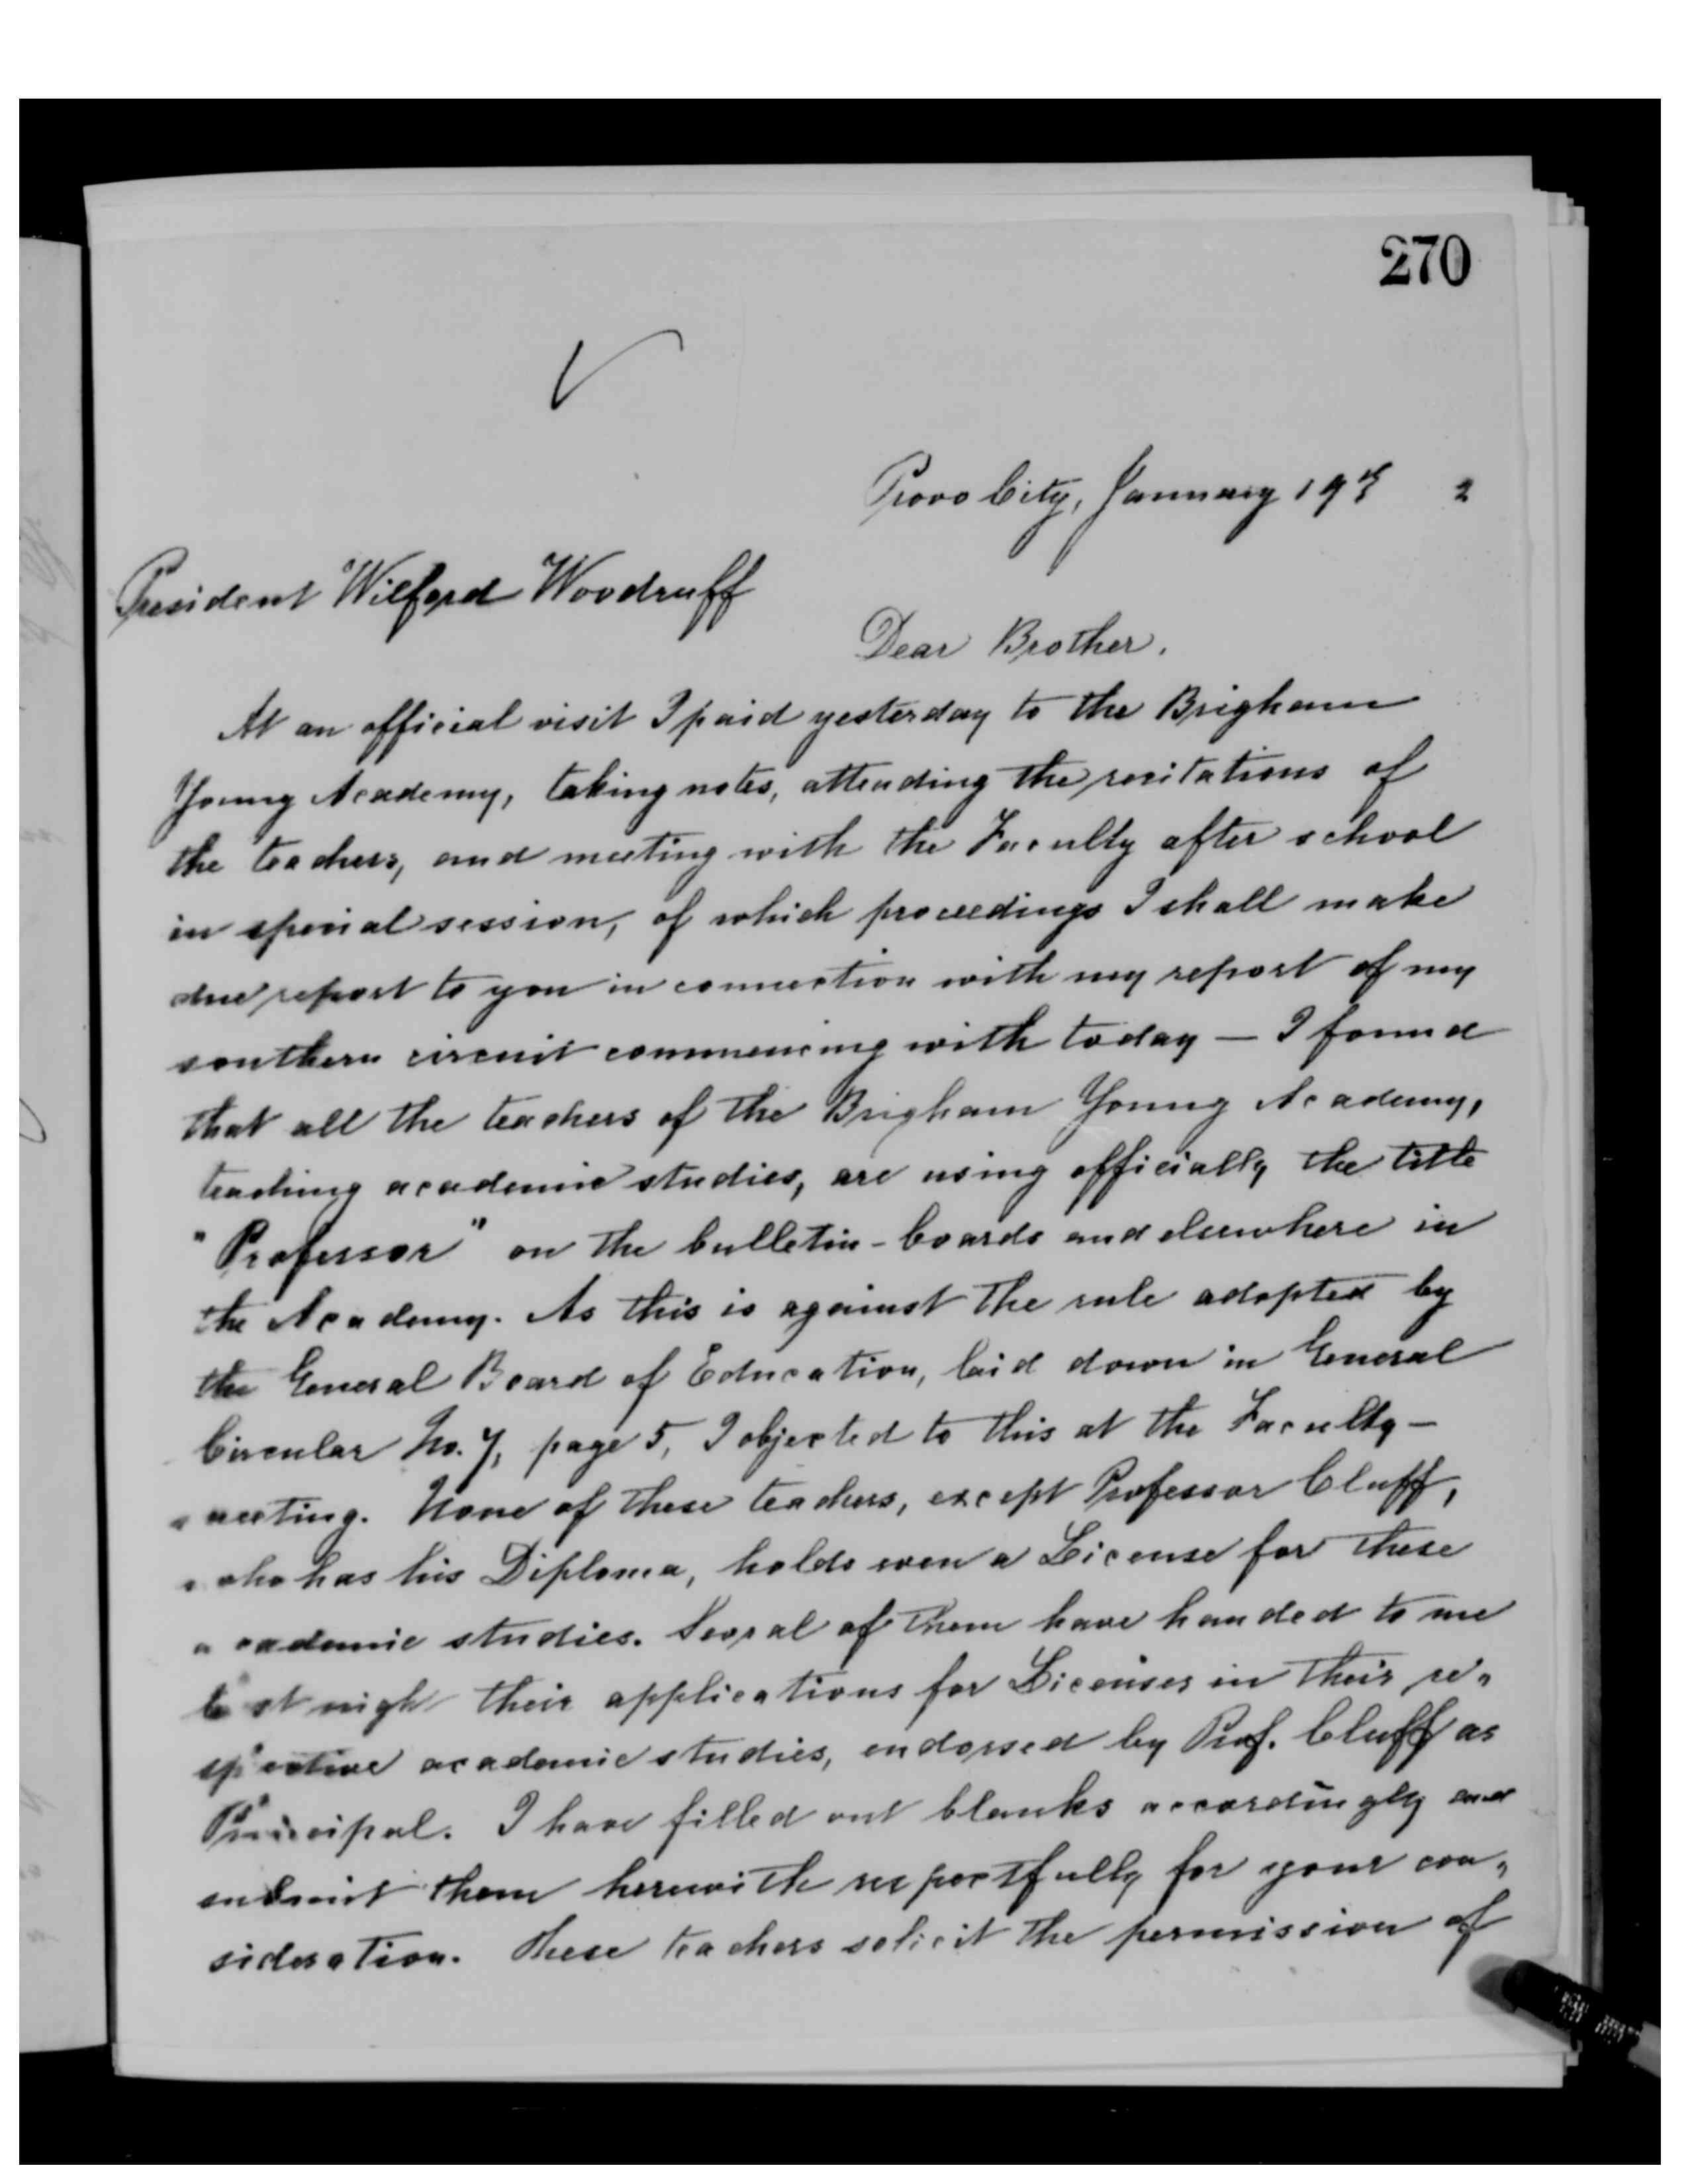 270
Provo City, January 19th 2
President Wilford Woodruff
Dear Brother.
At an official visit I paid yesterday to the Brigham
Young Academy, taking notes, attending the recitations of
the teachers, and meeting with the Faculty after school
in special session, of which proceedings I shall make
due report to you in connection with my report of my
southern circuit commencing with today — I found
that all the teachers of the Brigham Young Academy,
teaching academic studies, are using officially the title
"Professor" on the bulletin-boards and elsewhere in
the Academy. As this is against the rule adopted by
the General Board of Education, laid down in General
Circular No. 7, page 5, I objected to this at the Faculty-
meeting. None of these teachers, except Professor Cluff,
who has his Diploma, holds even a License for these
academic studies. Several of them have handed to me
last night their applications for Licenses in their re-
spective academic studies, endorsed by Prof. Cluff as
Principal. I have filled out blanks accordingly and
submit them herewith respectfully for your con-
sideration. These teachers solicit the permission of